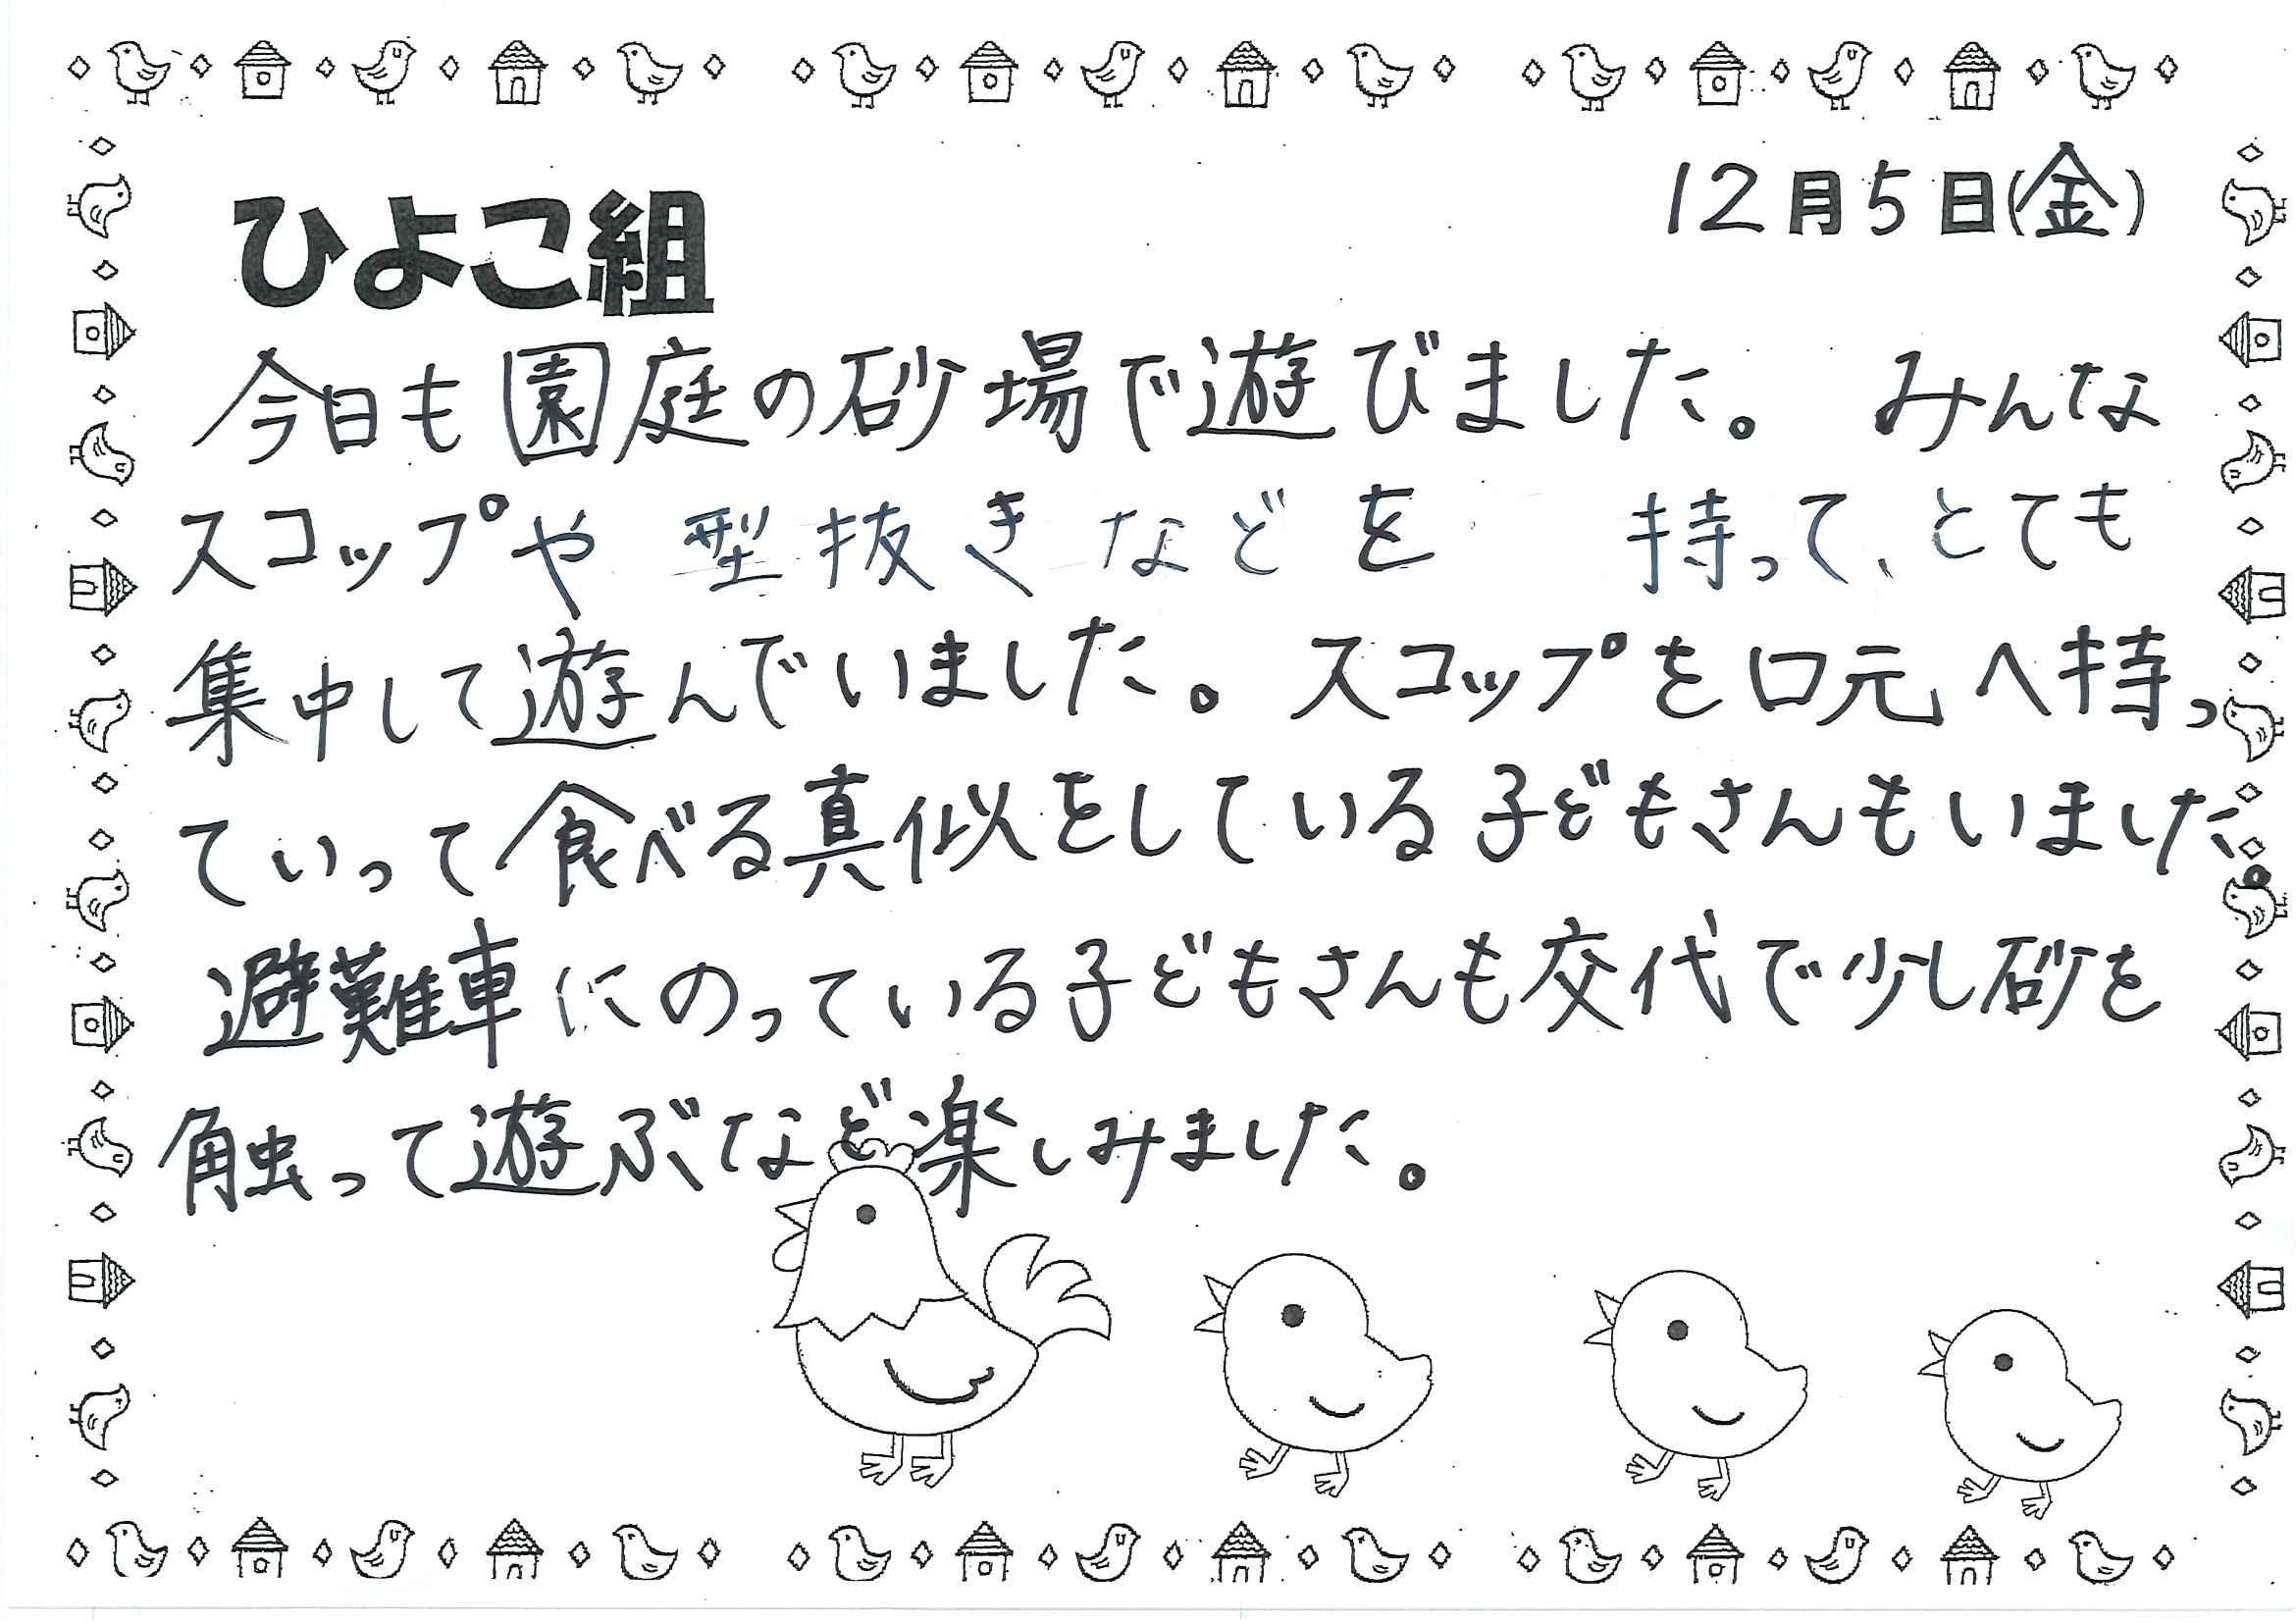 12月5日(金)
ひよこ組
今日も園庭の砂場で遊びました。 みんな
スコップや型抜きなどを 持って、とても
集中して遊んでいました。スコップを口元へ持っ
ていって食べる真似をしている子どもさんもいました。
避難車にのっている子どもさんも交代で少し砂を
触って遊ぶなど楽しみました。